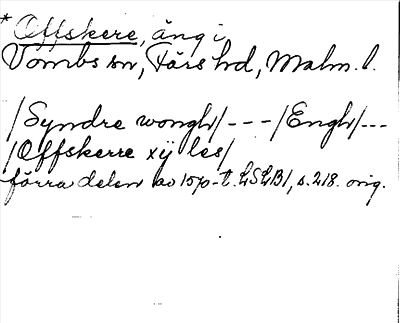 *Offskere, äng i
Vombs sn, Färs hd, Malm. l.
/Syndre wongh/---/Engh/---
/Offskerre xij les/
förra delen av 1570-t. LSLB1, s. 218. orig.